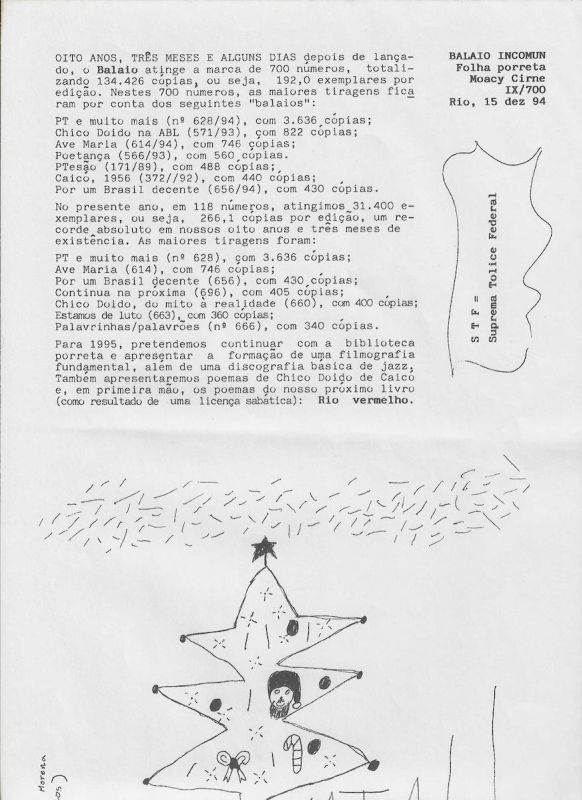 OITO ANOS, TRÊS MESES E ALGUNS DIAS depois de lança-
do, o Balaio atinge a marca de 700 números, totali-
zando 134.426 cópias, ou seja, 192,0 exemplares por
edição. Nestes 700 números, as maiores tiragens fica
ram por conta dos seguintes "balaios":
PT e muito mais (nº 628/94), com 3.636 cópias;
Chico Doido na ABL (571/93), com 822 cópias;
Ave Maria (614/94), com 746 cópias;
Poetança (566/93), com 560 cópias.
PTesão (171/89), com 488 cópias;
Caicó, 1956 (372//92), com 440 cópias;
Por um Brasil decente (656/94), com 430 cópias.
No presente ano, em 118 números, atingimos 31.400 e-
xemplares, ou seja, 266,1 cópias por edição, um re-
corde absoluto em nossos oito anos e três meses de
existência. As maiores tiragens foram:
PT e muito mais (nº 628), com 3.636 cópias;
Ave Maria (614), com 746 cópias;
Por um Brasil decente (656), com 430 cópias;
Continua na próxima (696), com 405 cópias;
Chico Doido, do mito à realidade (660), com 400 cópias;
Estamos de luto (663), com 360 cópias;
Palavrinhas/palavrões (nº 666), com 340 cópias.
Para 1995, pretendemos continuar com a biblioteca
porreta e apresentar a formação de uma filmografia
fundamental, além de uma discografia básica de jazz.
Também apresentaremos poemas de Chico Doido de Caicó
e, em primeira mão, os poemas do nosso próximo livro
(como resultado de uma licença sabática): Rio vermelho.
BALAIO INCOMUN
Folha porreta
Moacy Cirne
IX/700
Rio, 15 dez 94
S T F =
Suprema Tolice Federal
Morena